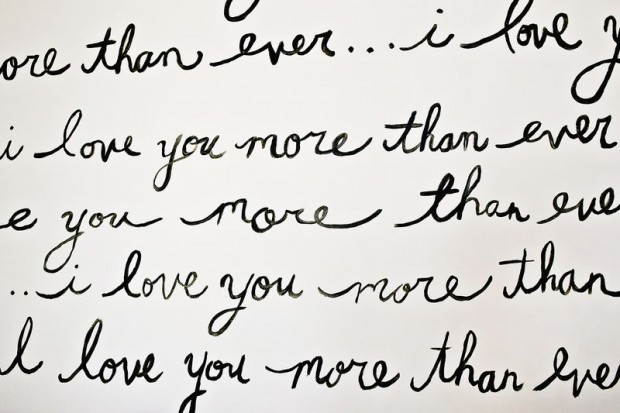 ore than ever...i love y
i love you more than ever
e you more than eve
..i love you more than
I love you more than eve